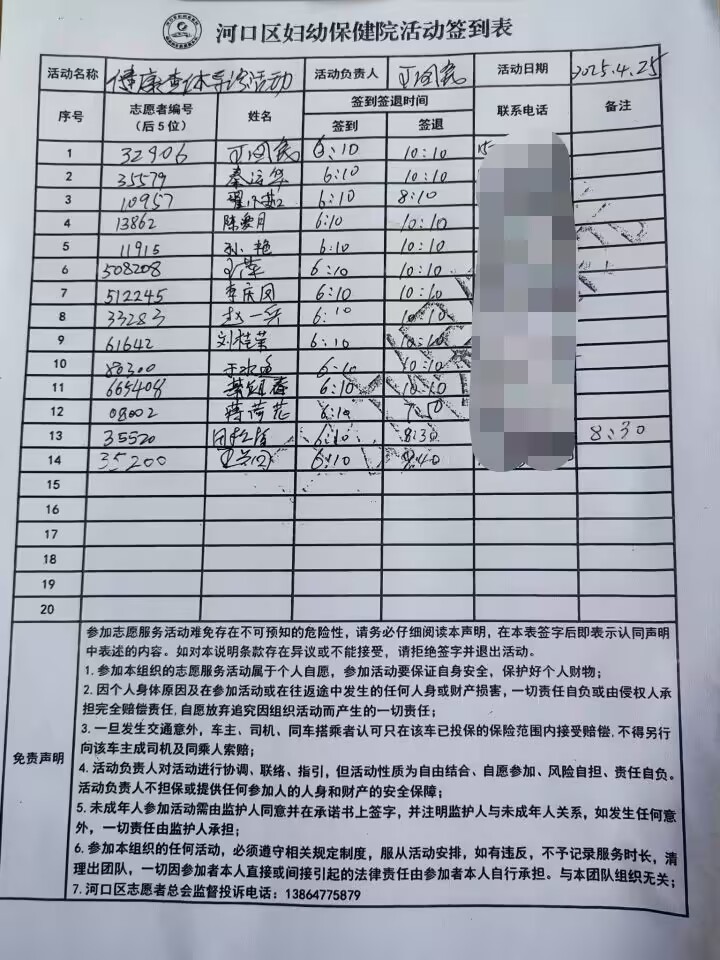 河口区妇幼保健院活动签到表
活动名称 健康查体导诊活动 活动负责人 活动日期 2025.4.25
序号 志愿者编号（后5位） 姓名 签到签退时间 联系电话 备注
签到 签退
1 32906 6:10 10:10 15
2 35579 秦运华 6:10 10:10
3 10957 6:10 8:10
4 13862 陈爱月 6:10 10:10
5 11915 孙艳 6:10 10:10
6 508208 6:10 10:10
7 512245 李庆凤 6:10 10:10
8 33283 赵一兵 6:10 10:10
9 61642 刘桂荣 6:10 10:10
10 80300 6:10 10:10
11 665408 6:10 10:10
12 08002 蒋荷花 6:10 7:50
13 35520 6:10 8:30 8:30
14 35200 6:10 8:40
15
16
17
18
19
20
免责声明
参加志愿服务活动难免存在不可预知的危险性，请务必仔细阅读本声明，在本表签字后即表示认同声明
中表述的内容。如对本说明条款存在异议或不能接受，请拒绝签字并退出活动。
1. 参加本组织的志愿服务活动属于个人自愿，参加活动要保证自身安全，保护好个人财物；
2. 因个人身体原因及在参加活动或在往返途中发生的任何人身或财产损害，一切责任自负或由侵权人承
担完全赔偿责任,自愿放弃追究因组织活动而产生的一切责任；
3. 一旦发生交通意外，车主、司机、同车搭乘者认可只在该车已投保的保险范围内接受赔偿,不得另行
向该车主成司机及同乘人索赔；
4. 活动负责人对活动进行协调、联络、指引，但活动性质为自由结合、自愿参加、风险自担、责任自负。
活动负责人不担保或提供任何参加人的人身和财产的安全保障；
5. 未成年人参加活动需由监护人同意并在承诺书上签字，并注明监护人与未成年人关系，如发生任何意
外，一切责任由监护人承担；
6. 参加本组织的任何活动，必须遵守相关规定制度，服从活动安排，如有违反，不予记录服务时长，清
理出团队，一切因参加者本人直接或间接引起的法律责任由参加者本人自行承担。与本团队组织无关；
7. 河口区志愿者总会监督投诉电话：13864775879